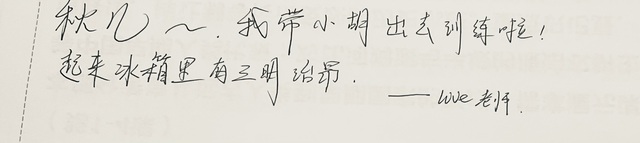 秋儿～. 我带小胡出去训练啦!
起来冰箱里有三明治昂.
—— 老师.